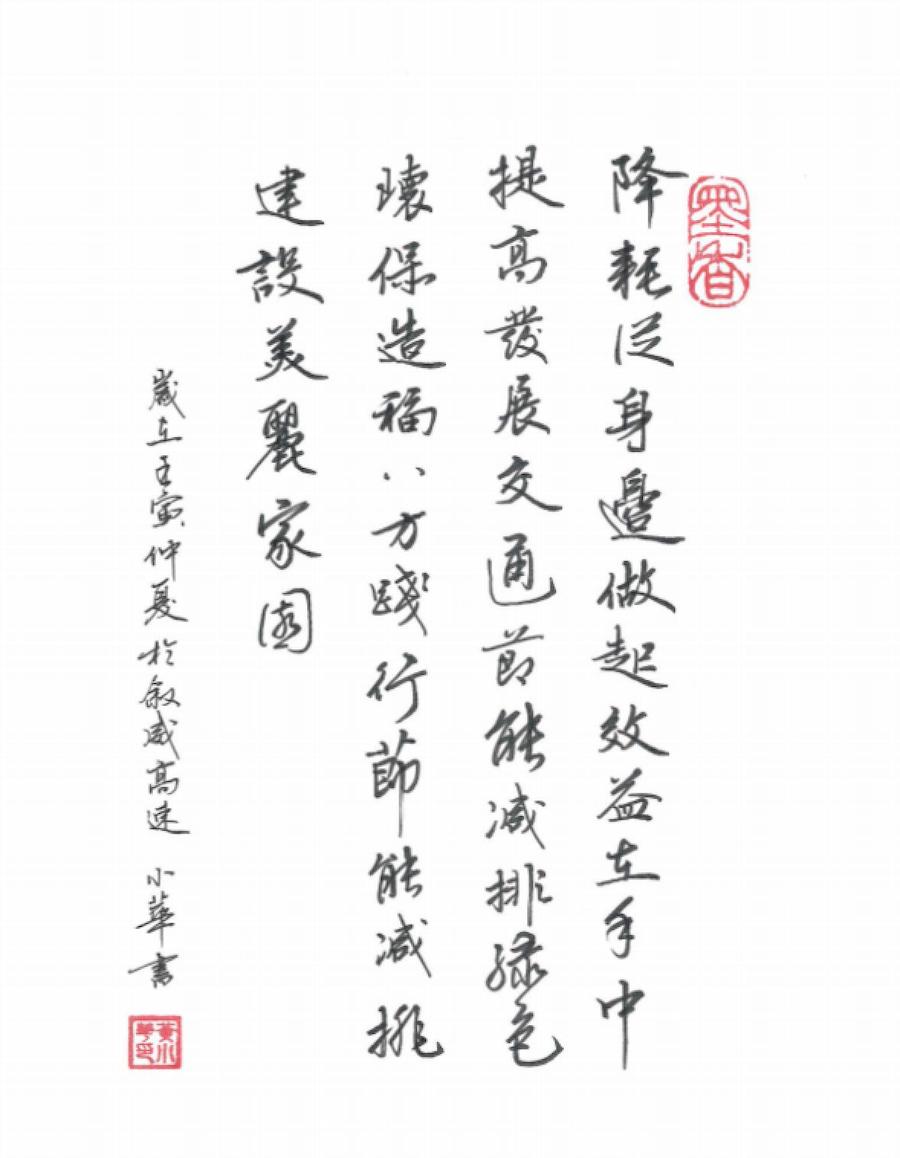 墨香
降耗從身邊做起效益在手中
提高發展交通節能減排綠色
環保造福八方踐行節能減排
建設美麗家園
歲在壬寅仲夏於叙威高速 小華書
黃小華印